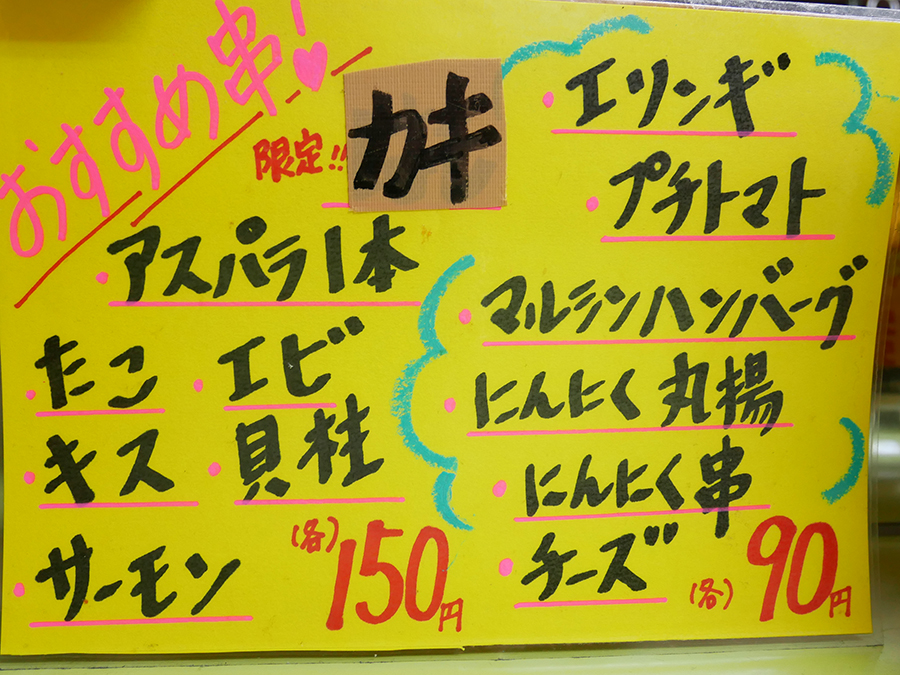 おすすめ串!
限定!! カキ
アスパラ1本
たこ
エビ
キス
貝柱
サーモン
(各)150円
エリンギ
プチトマト
マルシンハンバーグ
にんにく丸揚
にんにく串
チーズ
(各)90円